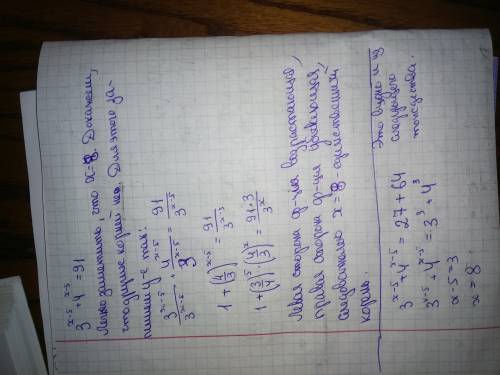 3^{x-5} + 4^{x-5} = 91
Легко заметить, что x=8. Докажем,
что других корней нет. Для этого за-
пишем у-е так:
\frac{3^{x-5}}{3^{x-5}} + \frac{4^{x-5}}{3^{x-5}} = \frac{91}{3^{x-5}}
1 + (\frac{4}{3})^{x-5} = \frac{91}{3^{x-5}}
1 + (\frac{3}{4})^5 · (\frac{4}{3})^x = \frac{91·3}{3^x}
Левая сторона ф-ция возрастающая,
правая сторона ф-ция убывающая,
следовательно x=8 - единственный
корень.
3^{x-5} + 4^{x-5} = 27 + 64
3^{x-5} + 4^{x-5} = 3^3 + 4^3
x-5=3
x=8
Это видно и из
следующего
тождества.